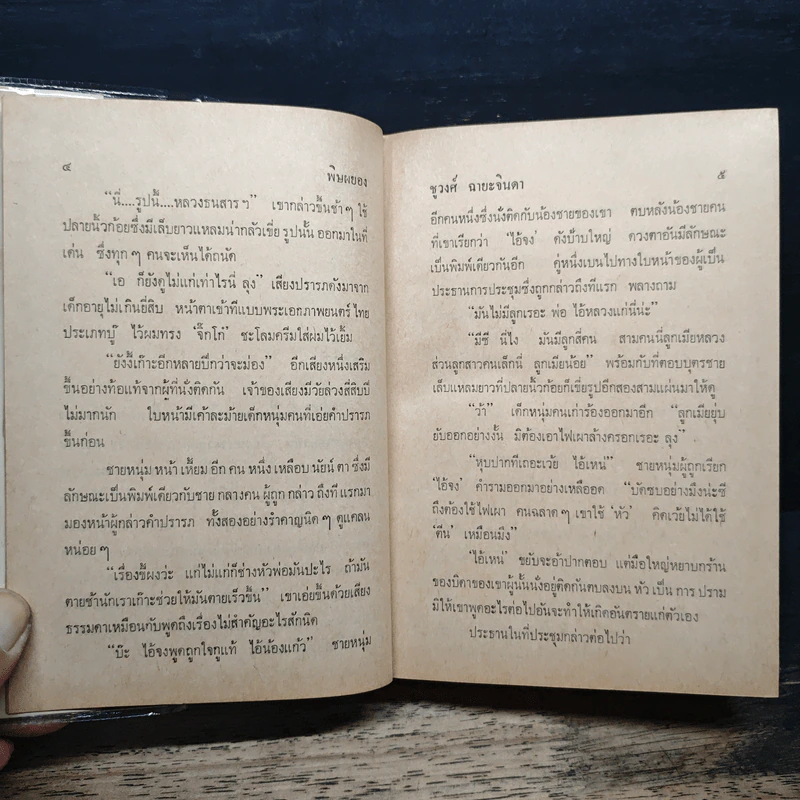 ๔
พิษผยอง
“นี่....รูปนี้....หลวงธนสารฯ” เขากล่าวขึ้นช้าๆ ใช้
ปลายนิ้วก้อยซึ่งมีเล็บยาวแหลมน่ากลัวเขี่ย รูปนั้น ออกมาในที่
เด่น ซึ่งทุกๆ คนจะเห็นได้ถนัด
“เอ ก็ยังดูไม่แก่เท่าไรนี่ ลุง” เสียงปรารภดังมาจาก
เด็กอายุไม่เกินยี่สิบ หน้าตาเข้าทีแบบพระเอกภาพยนตร์ไทย
ประเภทบู๊ ไว้ผมทรง ‘จิ๊กโก๋’ ชะโลมครีมใส่ผมไว้เยิ้ม
“ยังงี้เก๊าะอีกหลายปีกว่าจะม่อง” อีกเสียงหนึ่งเสริม
ขึ้นอย่างท้อแท้จากผู้ที่นั่งติดกัน เจ้าของเสียงมีวัยล่วงสี่สิบปี
ไม่มากนัก ใบหน้ามีเค้าละม้ายเด็กหนุ่มคนที่เอ่ยคำปรารภ
ขึ้นก่อน
ชายหนุ่ม หน้า เหี้ยม อีก คน หนึ่ง เหลือบ นัยน์ ตา ซึ่งมี
ลักษณะเป็นพิมพ์เดียวกับชาย กลางคน ผู้ถูก กล่าว ถึงที่ แรกมา
มองหน้าผู้กล่าวคำปรารภ ทั้งสองอย่างรำคาญนิดๆ ดูแคลน
หน่อยๆ
“เรื่องขี้ผงว่ะ แก่ไม่แก่ก็ช่างหัวพ่อมันปะไร ถ้ามัน
ตายช้านักเราเก๊าะช่วยให้มันตายเร็วขึ้น” เขาเอ่ยขึ้นด้วยเสียง
ธรรมดาเหมือนกับพูดถึงเรื่องไม่สำคัญอะไรสักนิด
“บ๊ะ ไอ้จงพูดถูกใจกูแท้ ไอ้น้องแก้ว” ชายหนุ่ม
ชูวงศ์ ฉายะจินดา
๕
อีกคนหนึ่งซึ่งนั่งติดกับน้องชายของเขา ตบหลังน้องชายคน
ที่เขาเรียกว่า ‘ไอ้จง’ ดังป้าบใหญ่ ดวงตาอันมีลักษณะ
เป็นพิมพ์เดียวกันอีก คู่หนึ่งเบนไปทางใบหน้าของผู้เป็น
ประธานการประชุมซึ่งถูกกล่าวถึงทีแรก พลางถาม
“มันไม่มีลูกเรอะ พ่อ ไอ้หลวงแก่นี่น่ะ”
“มีซี นี่ไง มันมีลูกสี่คน สามคนนี้ลูกเมียหลวง
ส่วนลูกสาวคนเล็กนี่ ลูกเมียน้อย” พร้อมกับที่ตอบบุตรชาย
เล็บแหลมยาวที่ปลายนิ้วก้อยก็เขี่ยรูปอีกสองสามแผ่นมาให้ดู
“ว้า” เด็กหนุ่มคนเก่าร้องออกมาอีก “ลูกเมียยุ่บ
ยับออกอย่างงั้น มิต้องเอาไฟเผาล้างครอกเรอะ ลุง”
“หุบปากทีเถอะเว้ย ไอ้เหน่” ชายหนุ่มผู้ถูกเรียก
‘ไอ้จง’ คำรามออกมาอย่างเหลืออด “บัดซบอย่างมึงน่ะซี
ถึงต้องใช้ไฟเผา คนฉลาดๆ เขาใช้ ‘หัว’ คิดเว้ยไม่ได้ใช้
‘ตีน’ เหมือนมึง”
‘ไอ้เหน่’ ขยับจะอ้าปากตอบ แต่มือใหญ่หยาบกร้าน
ของบิดาของเขาผู้นั้นนั่งอยู่ติดกันตบลงบน หัว เป็น การ ปราม
มิให้เขาพูดอะไรต่อไปอันจะทำให้เกิดอันตรายแก่ตัวเอง
ประธานในที่ประชุมกล่าวต่อไปว่า